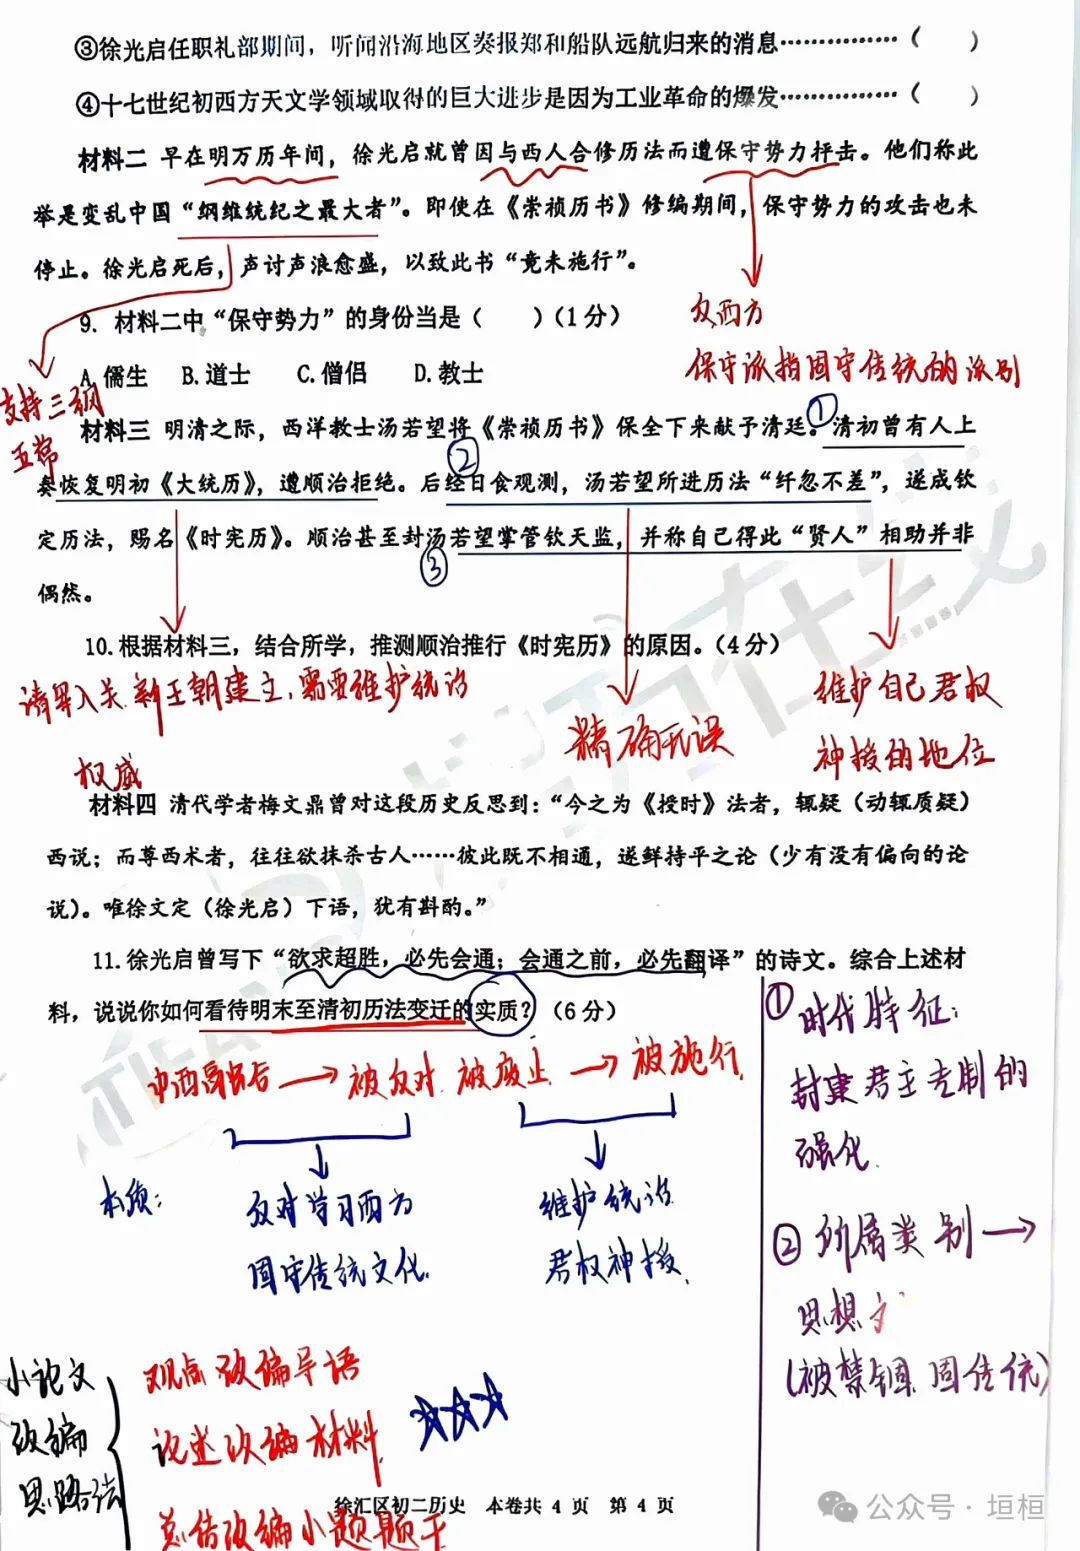 ③徐光启任职礼部期间，听闻沿海地区奏报郑和船队远航归来的消息……………（　　）
④十七世纪初西方天文学领域取得的巨大进步是因为工业革命的爆发……………（　　）
材料二 早在明万历年间，徐光启就曾因与西人合修历法而遭保守势力抨击。他们称此
举是变乱中国“纲维统纪之最大者”。即使在《崇祯历书》修编期间，保守势力的攻击也未
停止。徐光启死后，声讨声浪愈盛，以致此书“竟未施行”。
反西方
9. 材料二中“保守势力”的身份当是（　　）（1分）
保守派指固守传统的派别
A.儒生 B.道士 C.僧侣 D.教士
支持三纲
五常
①
材料三 明清之际，西洋教士汤若望将《崇祯历书》保全下来献予清廷。清初曾有人上
②
奏恢复明初《大统历》，遭顺治拒绝。后经日食观测，汤若望所进历法“纤忽不差”，遂成钦
定历法，赐名《时宪历》。顺治甚至封汤若望掌管钦天监，并称自己得此“贤人”相助并非
③
偶然。
10.根据材料三，结合所学，推测顺治推行《时宪历》的原因。（4分）
请军入关 新王朝建立，需要维护统治
权威
精确无误
维护自己君权
神授的地位
材料四 清代学者梅文鼎曾对这段历史反思到：“今之为《授时》法者，辄疑（动辄质疑）
西说；而尊西术者，往往欲抹杀古人……彼此既不相通，遂鲜持平之论（少有没有偏向的论
说）。唯徐文定（徐光启）下语，犹有斟酌。”
11.徐光启曾写下“欲求超胜，必先会通；会通之前，必先翻译”的诗文。综合上述材
料，说说你如何看待明末至清初历法变迁的实质？（6分）
中西 被反对 被废止 被施行
本质：
反对学习西方
固守传统文化
维护统治
君权神授
①时代特征：
封建君主专制的
强化
②所属类别
思想
（被禁锢 固传统）
小论文
改编
思路法
观点 改编导语
论述 改编材料
总结改编小题题干
徐汇区初二历史 本卷共 4 页 第 4 页
公众号·垣桓